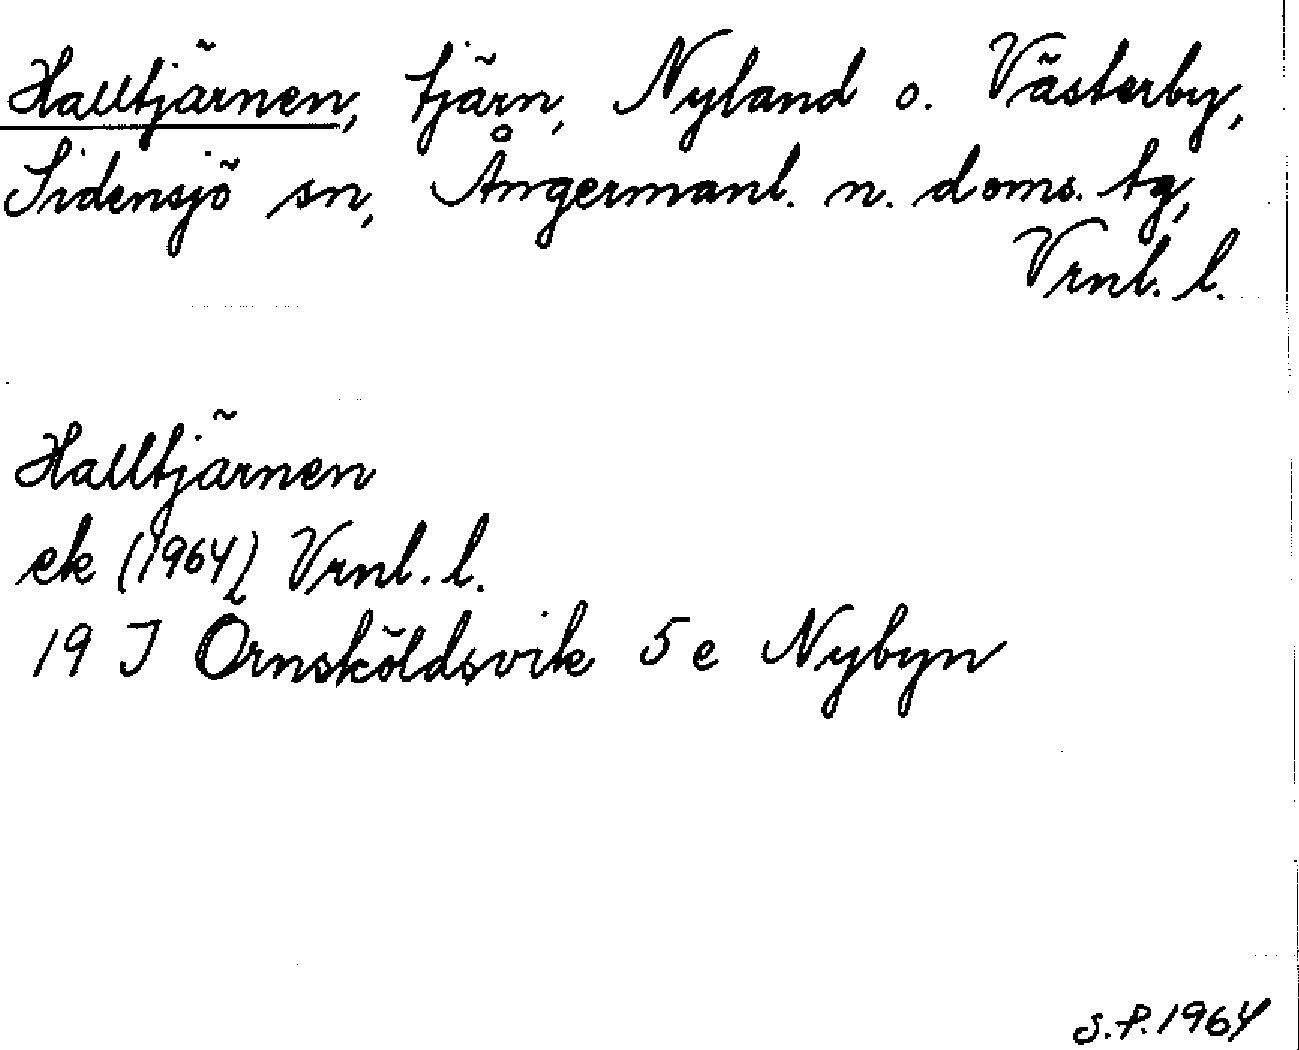 Halltjärnen, tjärn, Nyland o. Västerby,
Sidensjö sn, Ångermanl. n. doms. tg,
Vrnl. l.
Halltjärnen
ek (1964) Vrnl. l.
19 J Örnsköldsvik 5 e Nybyn
S.P. 1964